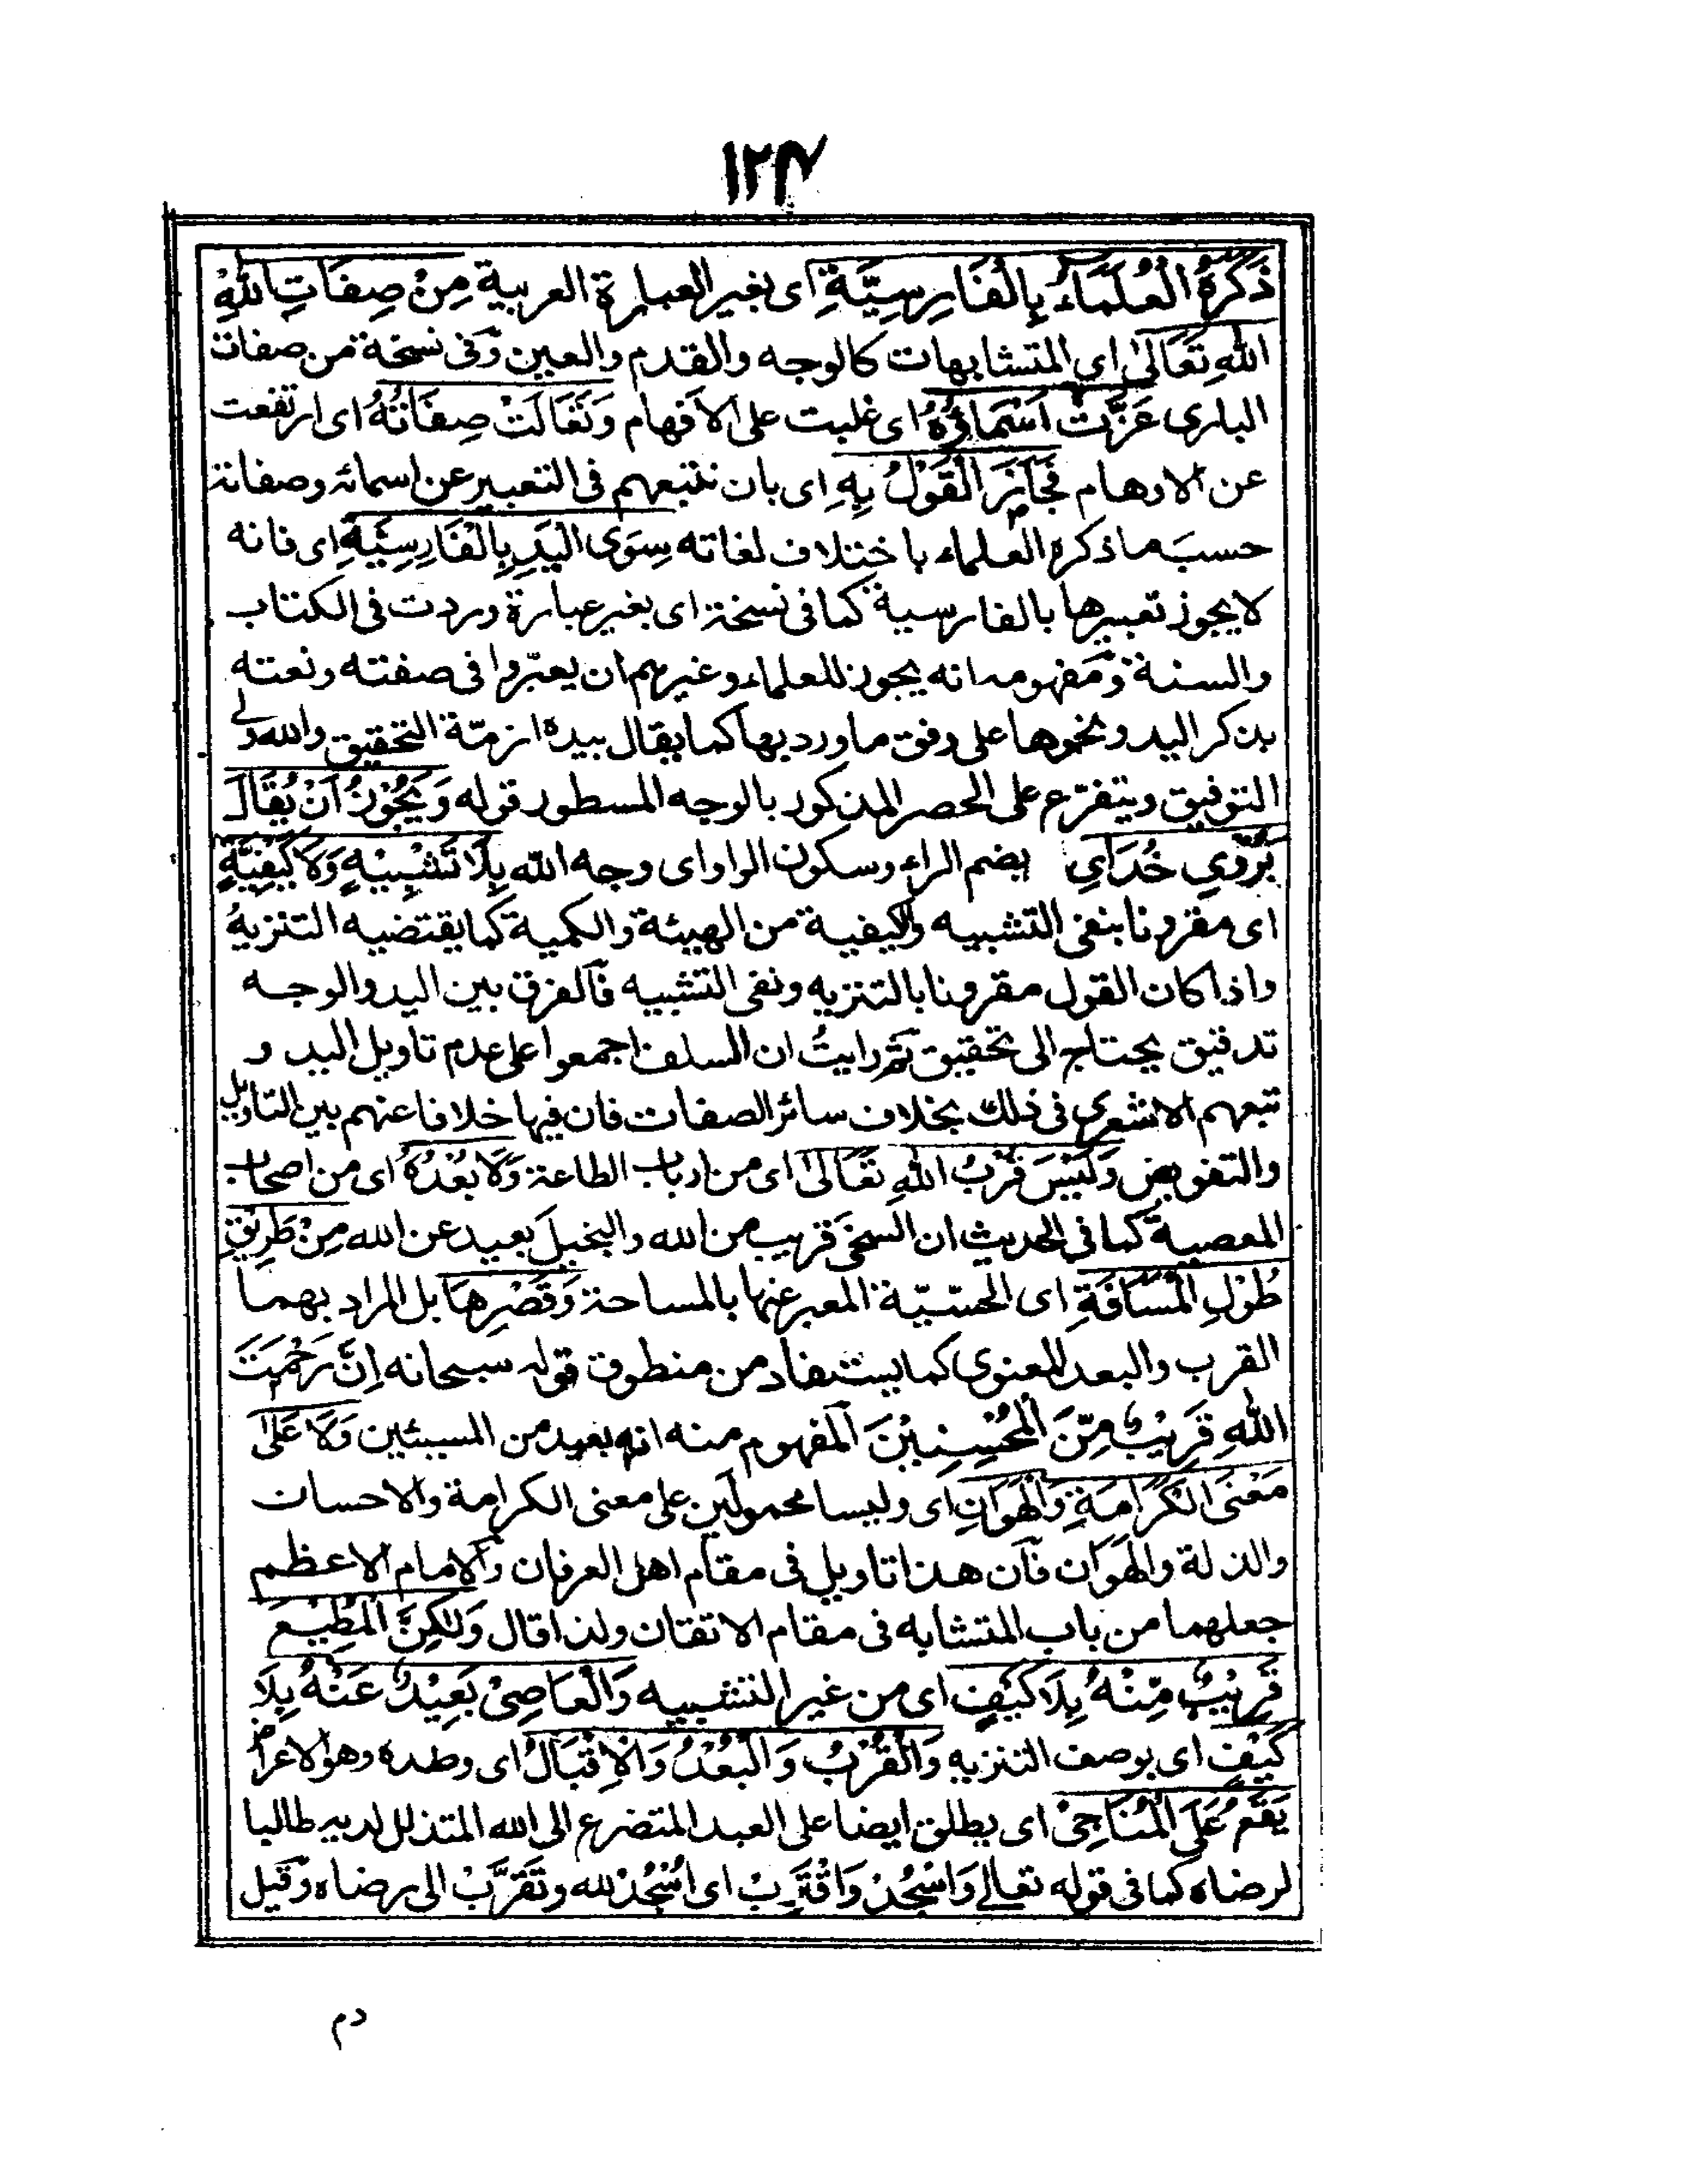 ١٢٤
ذَكَرَهُ الْعُلَمَاءُ بِالْفَارِسِيَّةِ اى بغير العبارة العربية مِنْ صِفَاتِ اللّٰهِ
اللّٰهِ تَعَالٰى اي المتشابهات كالوجه والقدم والعين وَفى نسخة من صفات
البارى عَزَّتْ اَسْمَاؤُهُ اى غلبت على الافهام وَتَعَالَتْ صِفَاتُهُ اى ارتفعت
عن الاوهام فَجَائِزٌ الْقَوْلُ بِهِ اى بان نتبعهم فى التعبير عن اسمائه وصفاته
حسبَ ما ذكره العلماء باختلاف لغاته سِوَى الْيَدِ بِالْفَارِسِيَّةِ اى فانه
لا يجوز تعبيرها بالفارسية كما فى نسخة اى بغير عبارة وردت فى الكتاب
والسنة وَمفهومه انه يجوز للعلماء وغيرهم ان يعبّروا فى صفته ونعته
بذكر اليد ونحوها على وفق ما ورد بها كما يقال بيده ازمّة التحقيق والله ولى
التوفيق ويتفرّع على الحصر المذكور بالوجه المسطور قوله وَيَجُوْزُ اَنْ يُقَالَ
بُرُوْيِ خُدَايِ بضم الراء وسكون الواو اى وجه الله بِلَا تَشْبِيْهٍ وَلَا كَيْفِيَّةٍ
اى مقرونا بنفى التشبيه والكيفية من الهيئة والكمية كما يقتضيه التنزيهُ
واذا كان القول مقرونا بالتنزيه ونفى التشبيه فَالفرق بين اليد والوجه
تدقيق يحتاج الى تحقيق ثم رايتُ ان السلف اجمعوا على عدم تاويل اليد و
تبعهم الاشعرى فى ذلك بخلاف سائر الصفات فان فيها خلافا عنهم بين التاويل
والتفويض وَلَيْسَ قُرْبُ اللّٰهِ تَعَالٰى اى من ارباب الطاعة وَلَا بُعْدُهُ اى من اصحاب
المعصية كما فى الحديث ان السخىَ قريب من الله والبخيلَ بعيد عن الله مِنْ طَرِيْقِ
طُوْلِ الْمَسَافَةِ اى الحسّيّة المعبر عنها بالمساحة وَقَصْرِهَا بل المراد بهما
القرب والبعد المعنوى كما يستفاد من منطوق قوله سبحانه اِنَّ رَحْمَتَ
اللّٰهِ قَرِيْبٌ مِّنَ الْمُحْسِنِيْنَ اَلمفهوم منه انه بعيد من المسيئين وَلَا عَلٰى
مَعْنَى الْكَرَامَةِ وَالْهَوَانِ اى وليسا محمولين على معنى الكرامة والاحسان
والذلة والهَوَان فَان هذا تاويل فى مقام اهل العرفان وَالامام الاعظم
جعلهما من باب المتشابه فى مقام الاتقان ولذا قال وَلٰكِنَّ الْمُطِيْعَ
قَرِيْبٌ مِّنْهُ بِلَا كَيْفٍ اى من غير التشبيه وَالْعَاصِىْ بَعِيْدٌ عَنْهُ بِلَا
كَيْفٍ اى بوصف التنزيه وَالْقُرْبُ وَالْبُعْدُ وَالْاِقْبَالُ اى وضده وهو الاعراض
يَقَعُ عَلَى الْمُنَاجِىْ اى يطلق ايضا على العبد المتضرع الى الله المتذلل لديه طالبا
لرضاه كما فى قوله تعالى وَاسْجُدْ وَاقْتَرِبْ اى اُسْجُدْ لله وتَقَرَّبْ الى رضاه وَقيل
دم